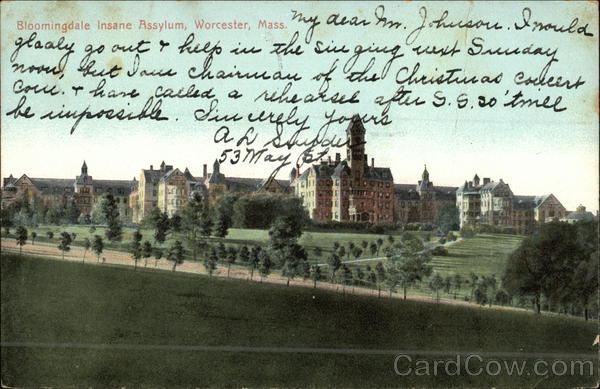 Bloomingdale Insane Assylum, Worcester, Mass.
My dear Mr. Johnson. I would
gladly go out & help in the singing next Sunday
noon, but I am chairman of the Christmas concert
com. & have called a rehearsel after S.S. so 'twill
be impossible. Sincerely yours
A L
53 May St.
CardCow.com